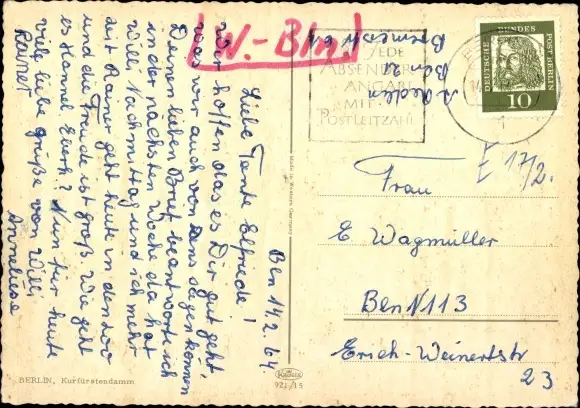 W.-Bln!
Bln 14.2.64.
Liebe Tante Elfriede!
Wir hoffen das es Dir gut geht,
was wir auch von uns sagen können
Deinen lieben Brief beantworte ich
in der nächsten Woche da hat
Willi Nachmittag und ich mehr
Zeit Rainer geht heute in den Zoo
und die Freude ist groß. Wie geht
es Hannel Euch? Nun für heute
viele liebe Grüße von Willi
Rainer Anneliese
BERLIN, Kurfürstendamm
Made in Western Germany
Krüger
921/15
Bln 28
JEDE
ABSENDER-
ANGABE
MIT
POSTLEITZAHL
DEUTSCHE BUNDESPOST BERLIN
10
E 17/2.
Frau
E. Wagmüller
Bln N 113
Erich-Weinertstr
23